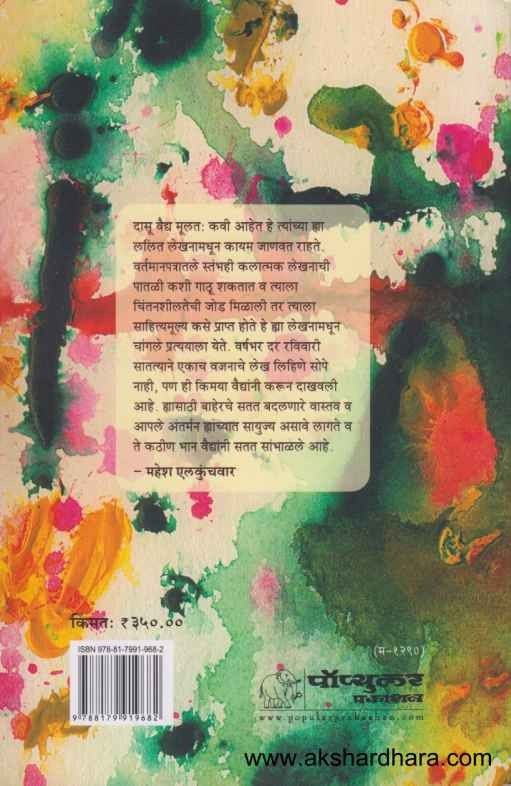 दासू वैद्य मूलतः कवी आहेत हे त्यांच्या ह्या
ललित लेखनामधून कायम जाणवत राहते.
वर्तमानपत्रातले स्तंभही कलात्मक लेखनाची
पातळी कशी गाठू शकतात व त्याला
चिंतनशीलतेची जोड मिळाली तर त्याला
साहित्यमूल्य कसे प्राप्त होते हे ह्या लेखनामधून
चांगले प्रत्ययाला येते. वर्षभर दर रविवारी
सातत्याने एकाच वजनाचे लेख लिहिणे सोपे
नाही, पण ही किमया वैद्यांनी करून दाखवली
आहे. ह्यासाठी बाहेरचे सतत बदलणारे वास्तव व
आपले अंतर्मन ह्यांच्यात सायुज्य असावे लागते व
ते कठीण भान वैद्यांनी सतत सांभाळले आहे.
– महेश एलकुंचवार
किंमतः ₹३५०.००
ISBN 978-81-7991-968-2
9 788179 919682
(म-१२९०)
पॉप्युलर
प्रकाशन
www.popularprakashan.com
www.akshardhara.com